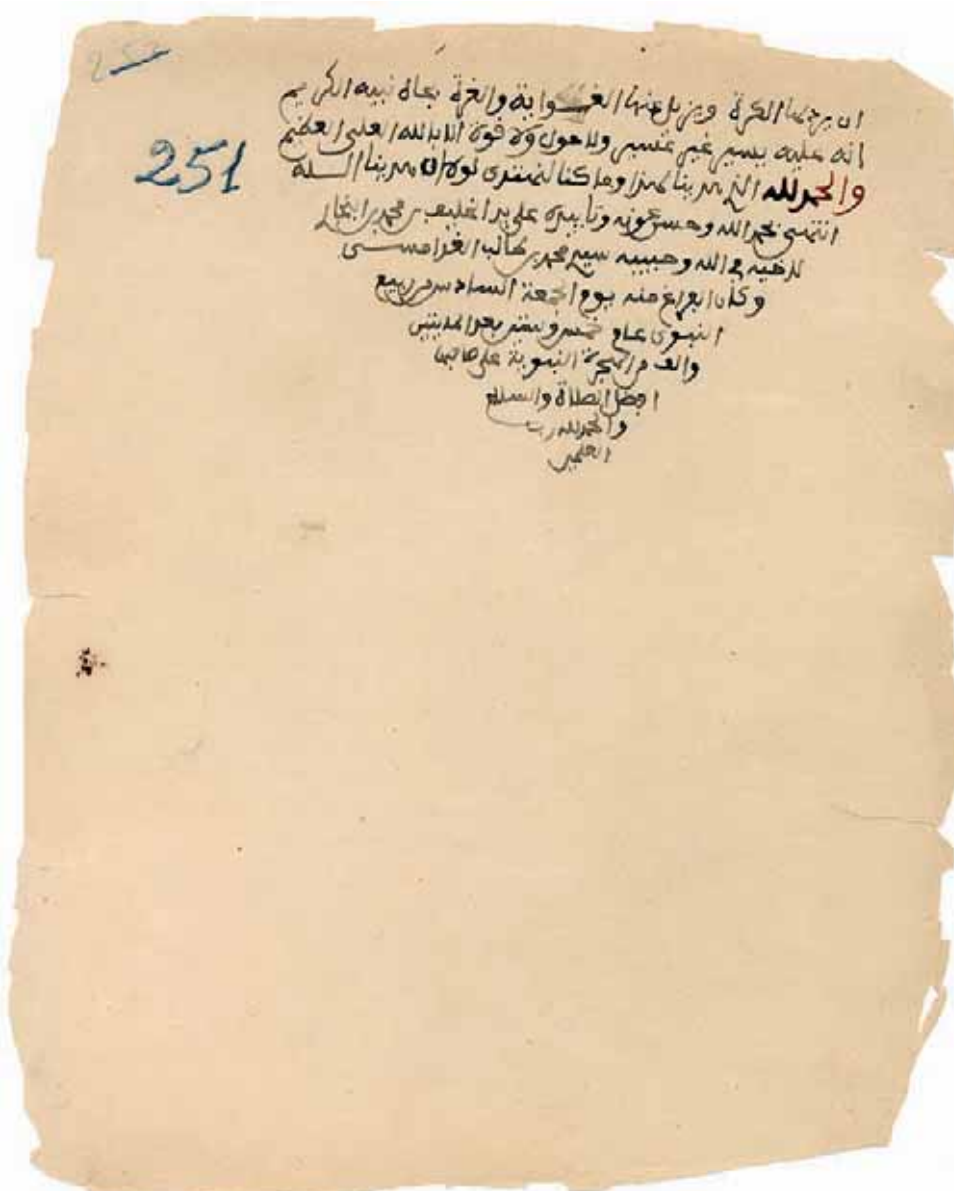 251
ان يرجع لها الكرة ويزيل عنها الغواية والغرة بجاه نبيه الكريم
انه عليه يسير غير عسير ولا حول ولا قوة الا بالله العلي العظيم
والحمد لله الذي هدينا لهذا وما كنا لنهتدي لولا ان هدينا الله
انتهى بحمد الله وحسن عونه وتاييده على يد محمد بن
لاخيه في الله وحبيبه سيدي محمد بن طالب الغدامسي
وكان الفراغ منه يوم الجمعة السادس من ربيع
النبوي عام خمس وستين بعد المايتين
والف من الهجرة النبوية على صاحبها
افضل الصلاة والسلام
والحمد لله رب
العلمين